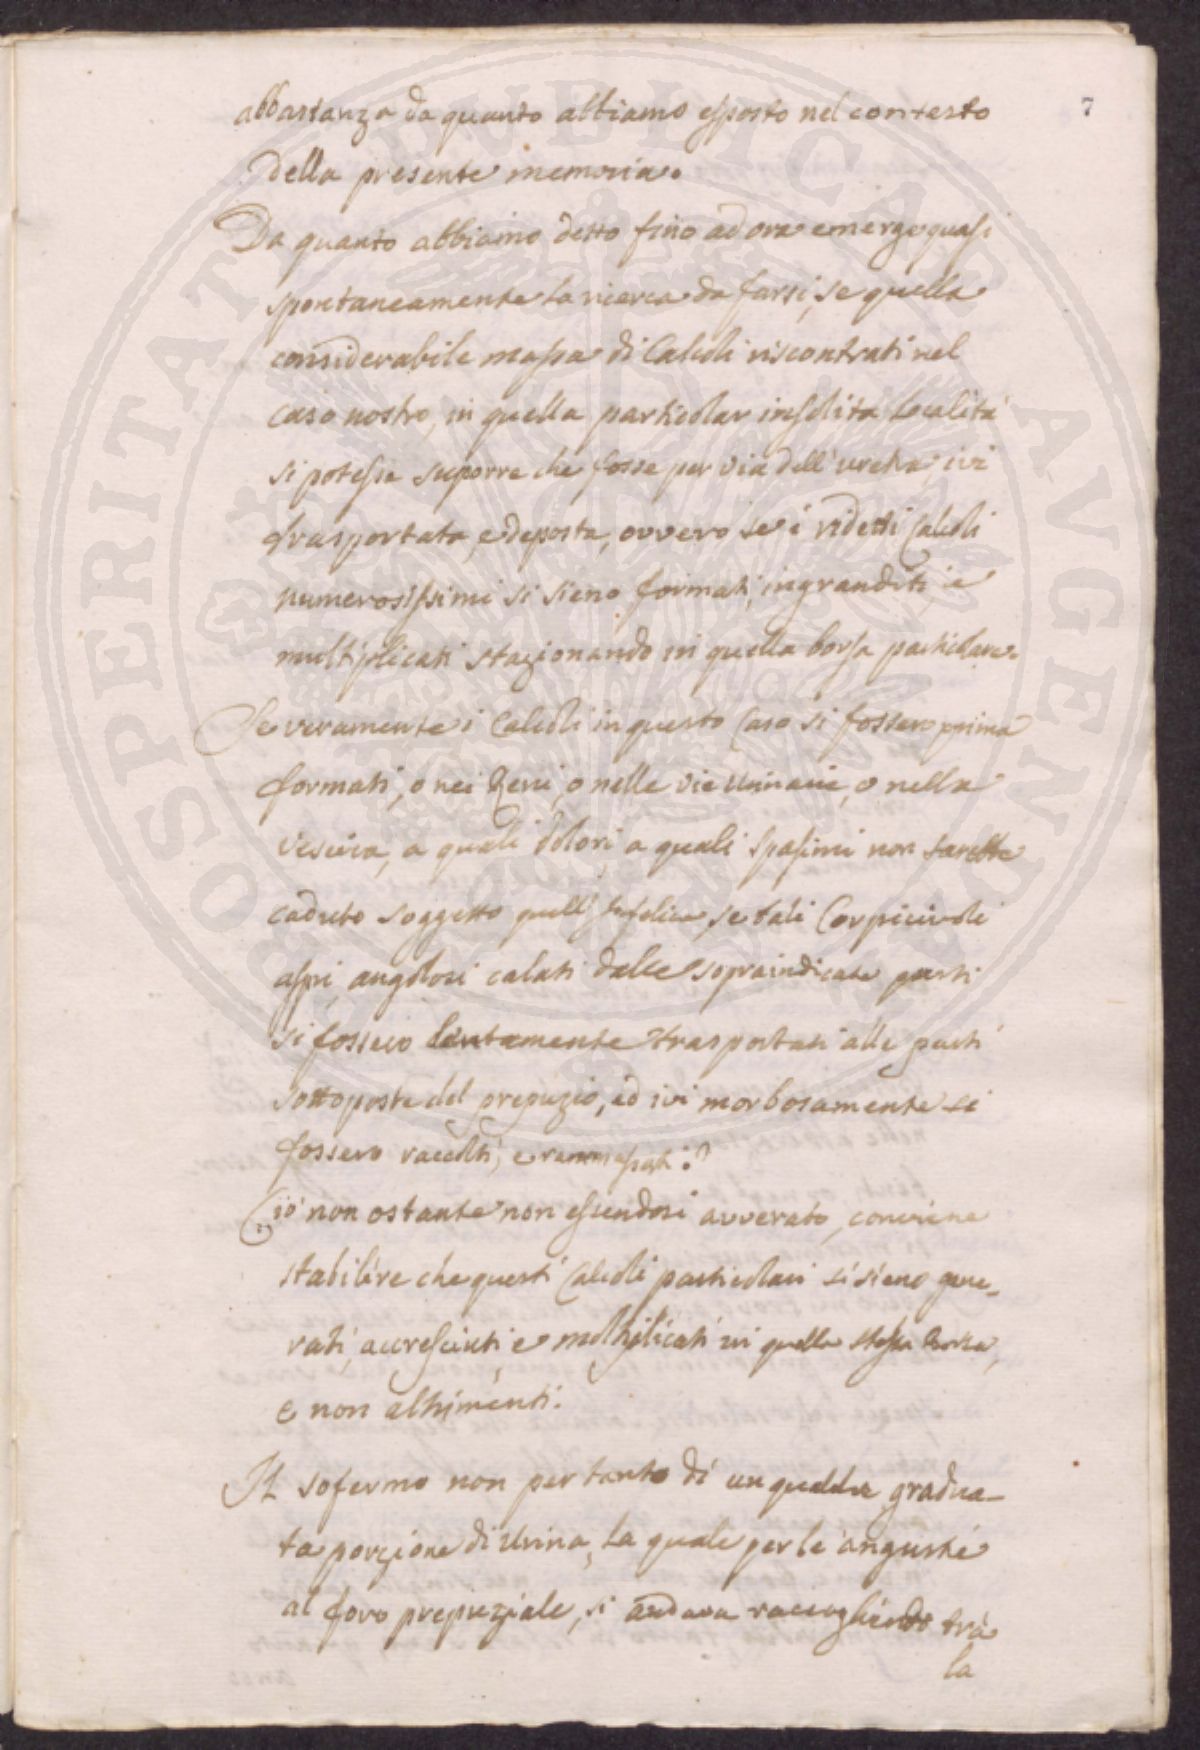 7
abbastanza da quanto abbiamo esposto nel contesto
della presente memoria.
Da quanto abbiamo detto fino ad ora emerge quasi
spontaneamente la ricerca da farsi, se quella
considerabile massa di Calcoli riscontrati nel
caso nostro, in quella particolar insolita località
si potesse suporre che fosse per via dell'uretra, ivi
trasportata, e deposta, ovvero se i ridetti Calcoli
numerosissimi si sieno formati, ingranditi, e
multiplicati stazionando in quella borsa particolare.
Se veramente i Calcoli in questo Caso si fossero prima
formati, o nei Reni, o nelle vie Urinarie, o nella
vescica, a quali dolori, a quali spasimi non sarebbe
caduto soggetto quell'Infelice, se tali Corpicivoli
aspri, angolosi calati dalle sopraindicate parti
si fossero lentamente trasportati alle parti
sottoposte del prepuzio, ed ivi morbosamente si
fossero raccolti, e rammassati?
Ciò non ostante non essendosi avverato, conviene
stabilire che questi Calcoli particolari si sieno gene-
rati, accresciuti, e moltiplicati in quella stessa Borsa,
e non altrimenti.
Il sofermo non per tanto di un qualche gradua-
ta porzione di Urina, la quale per le anguste
al foro prepuziale, si andava raccogliendo trà
la
SPERITATI PVBLICAE AVGENDAE